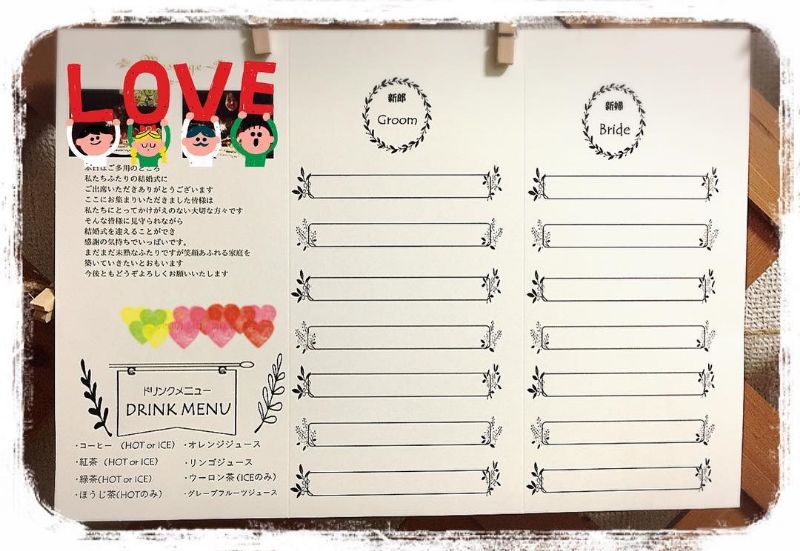 LOVE
本日はご多用のところ
私たちふたりの結婚式に
ご出席いただきありがとうございます
ここにお集まりいただきました皆様は
私たちにとってかけがえのない大切な方々です
そんな皆様に見守られながら
結婚式を迎えることができ
感謝の気持ちでいっぱいです。
まだまだ未熟なふたりですが笑顔あふれる家庭を
築いていきたいとおもいます
今後ともどうぞよろしくお願いいたします
ドリンクメニュー
DRINK MENU
・コーヒー (HOT or ICE)
・紅茶 (HOT or ICE)
・緑茶(HOT or ICE)
・ほうじ茶(HOTのみ)
・オレンジジュース
・リンゴジュース
・ウーロン茶(ICEのみ)
・グレープフルーツジュース
新郎
Groom
新婦
Bride